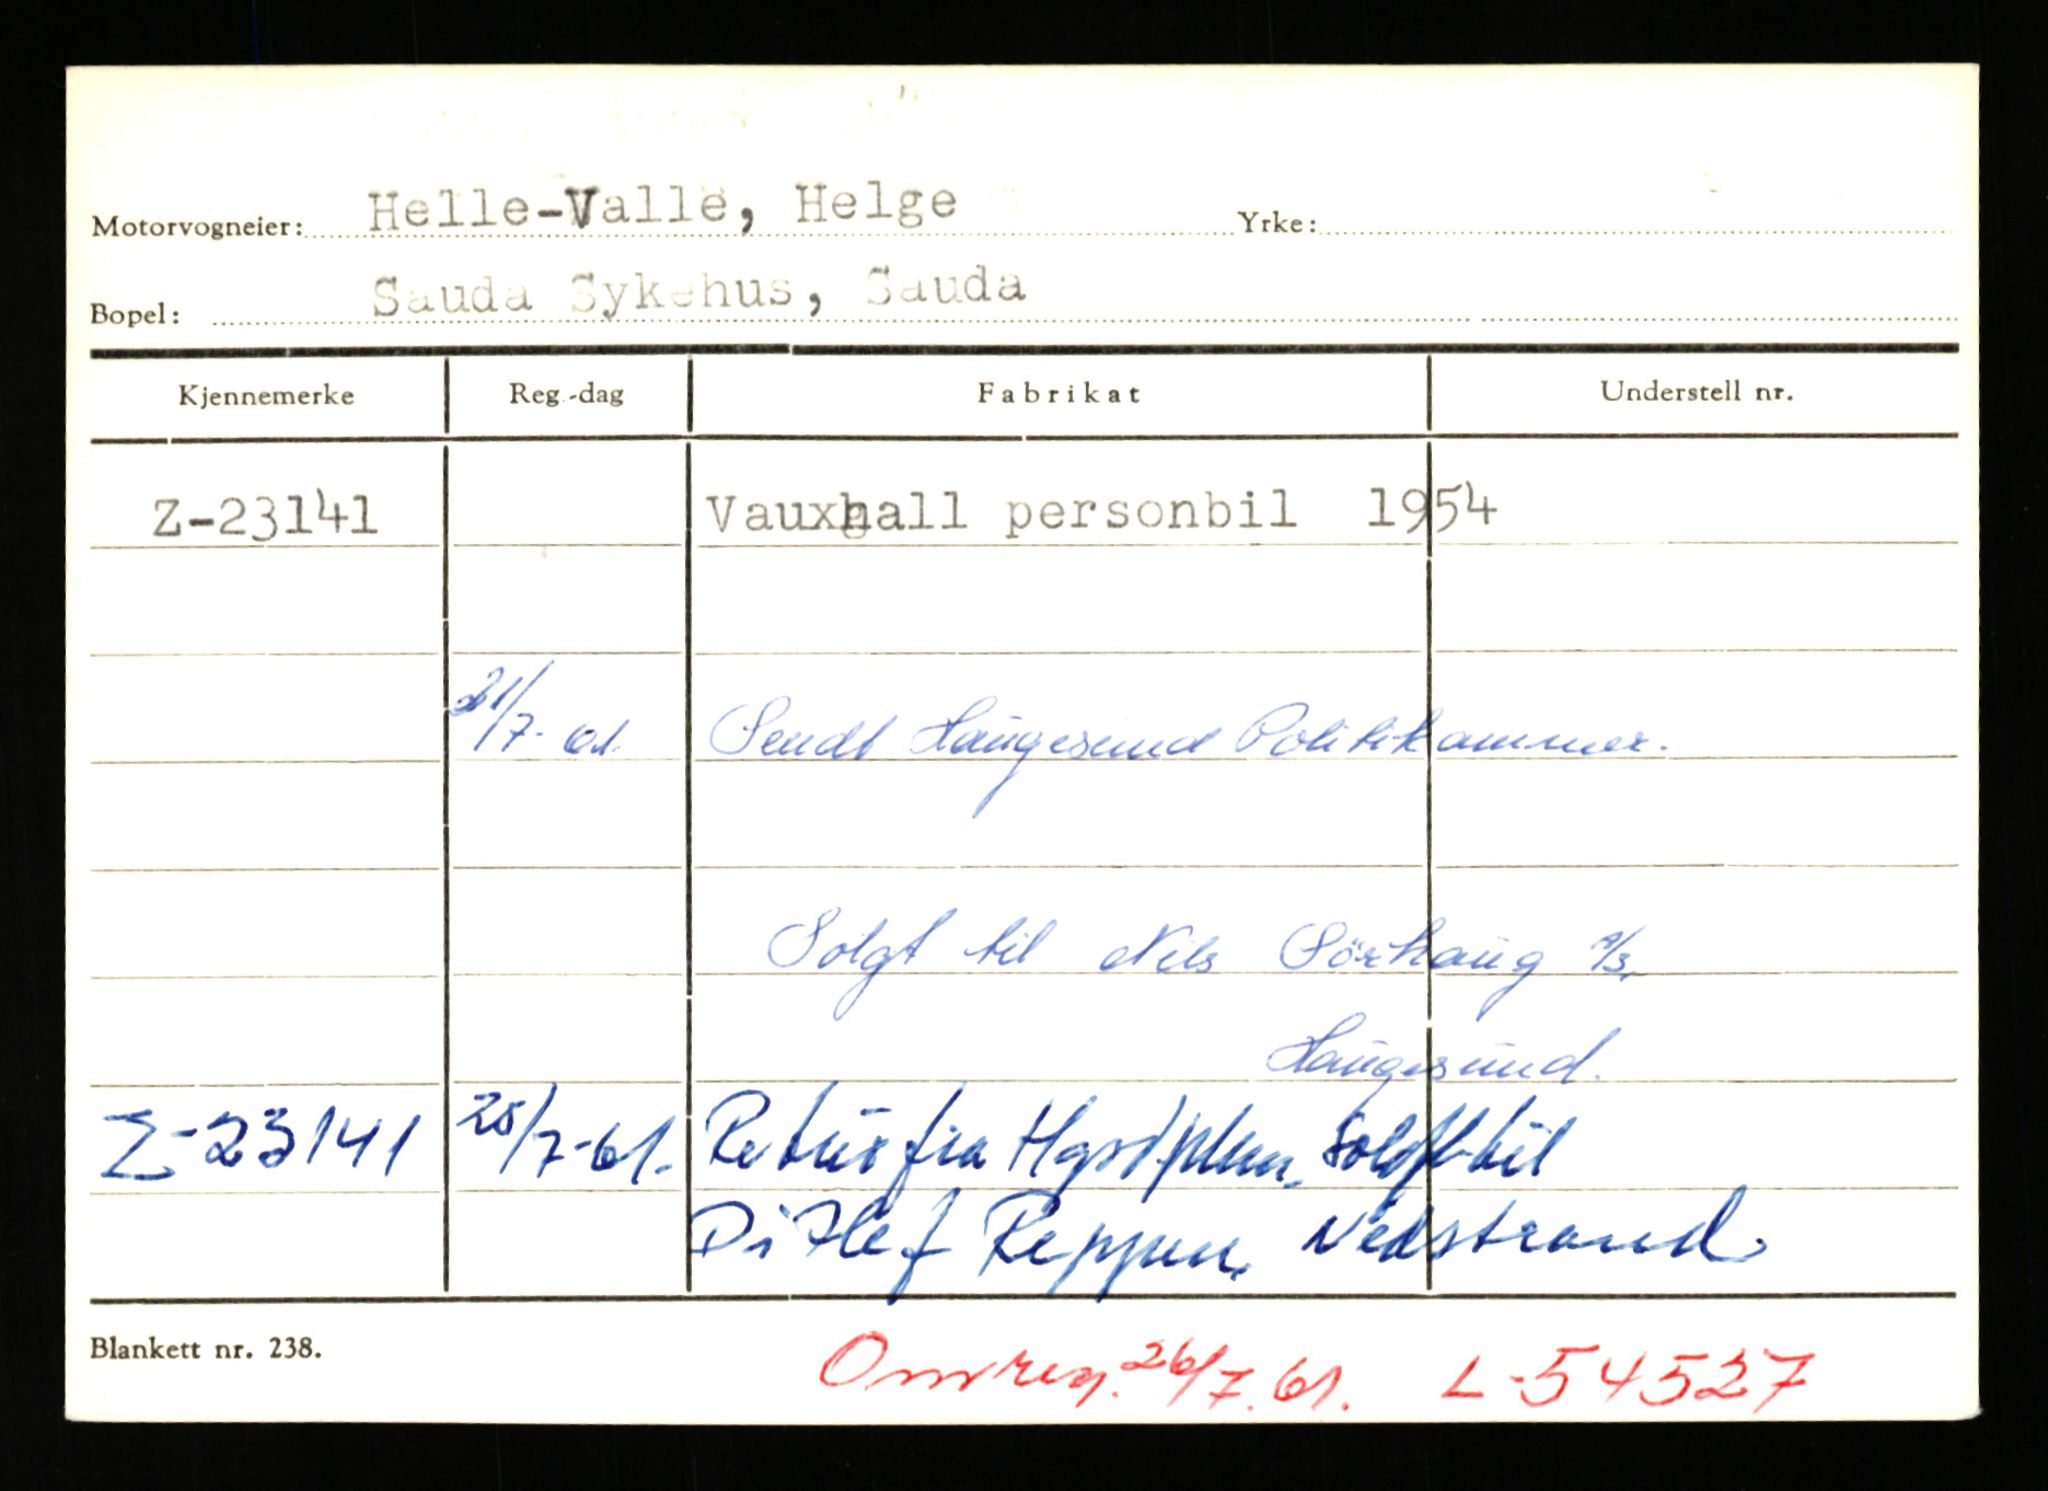 Motorvogneier: Helle-Valle, Helge Yrke:
Bopel: Sauda Sykehus, Sauda
Kjennemerke Reg.-dag Fabrikat Understell nr.
Z-23141 Vauxhall personbil 1954
21/7-61. Sendt Haugesund Politikammer.
Solgt til Nils Sörhaug A/S,
Haugesund.
Z-23141 25/7-61. Retur fra Hgsd pkm. Solgt til
Ditlef Reppen, Nedstrand
Blankett nr. 238.
Omreg. 26/7.61. L-54527